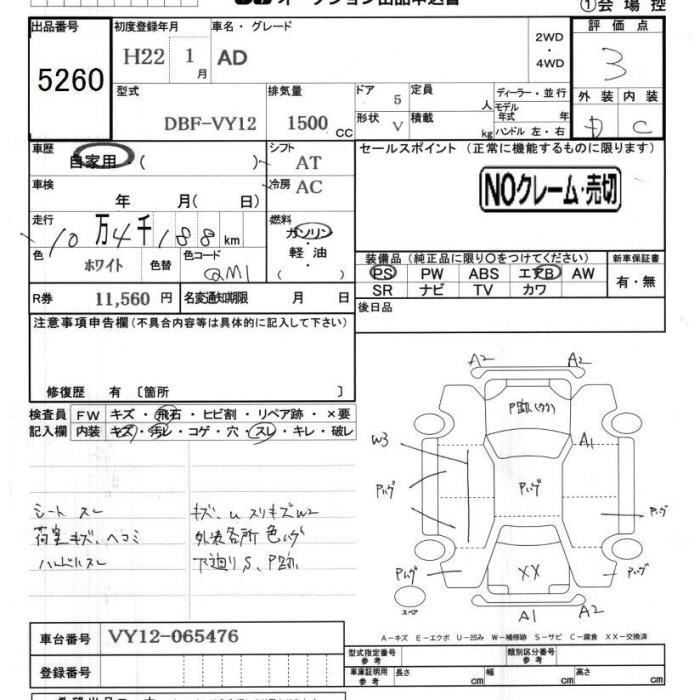 オークション出品申込書
①会場控
出品番号 初度登録年月 車名・グレード 評価点
5260 H22 1月 AD 2WD・4WD 3
型式 排気量 ドア 定員 ディーラー・並行 外装 内装
DBF-VY12 1500 CC 5 人 モデル年式 年 D C
形状 V 積載 kg ハンドル 左・右
車歴 シフト セールスポイント (正常に機能するものに限ります)
自家用・( ) AT
車検 冷房 AC NOクレーム・売切
年 月( 日)
走行 燃料
10万4千188km ガソリン・軽油
色 ホワイト 色替 色コード QM1
装備品 (純正品に限り○をつけてください) 新車保証書
PS PW ABS エアB AW 有・無
SR ナビ TV カワ
R券 11,560円 名変通知期限 月 日
後日品
注意事項申告欄(不具合内容等は具体的に記入して下さい)
修復歴 有 〔箇所 〕
検査員 FW キズ・飛石・ヒビ割・リペア跡・×要
記入欄 内装 キズ・汚レ・コゲ・穴・スレ・キレ・破レ
シート スレ
荷室キズ、ヘコミ
ハンドルスレ
キズ、U スリキズW2
外装各所色ハゲ
下廻りS、P跡
A2 A2
P跡(ワク)
W3 A1
Pハゲ Pハゲ Pハゲ
Pハゲ XX Pハゲ
スペア A1 A2
A-キズ E-エクボ U-凹み W-補修跡 S-サビ C-腐食 XX-交換済
車台番号 VY12-065476
型式指定番号 参考 類別区分番号 参考
登録番号
車庫証明用 参考 長さ cm 幅 cm 高さ cm